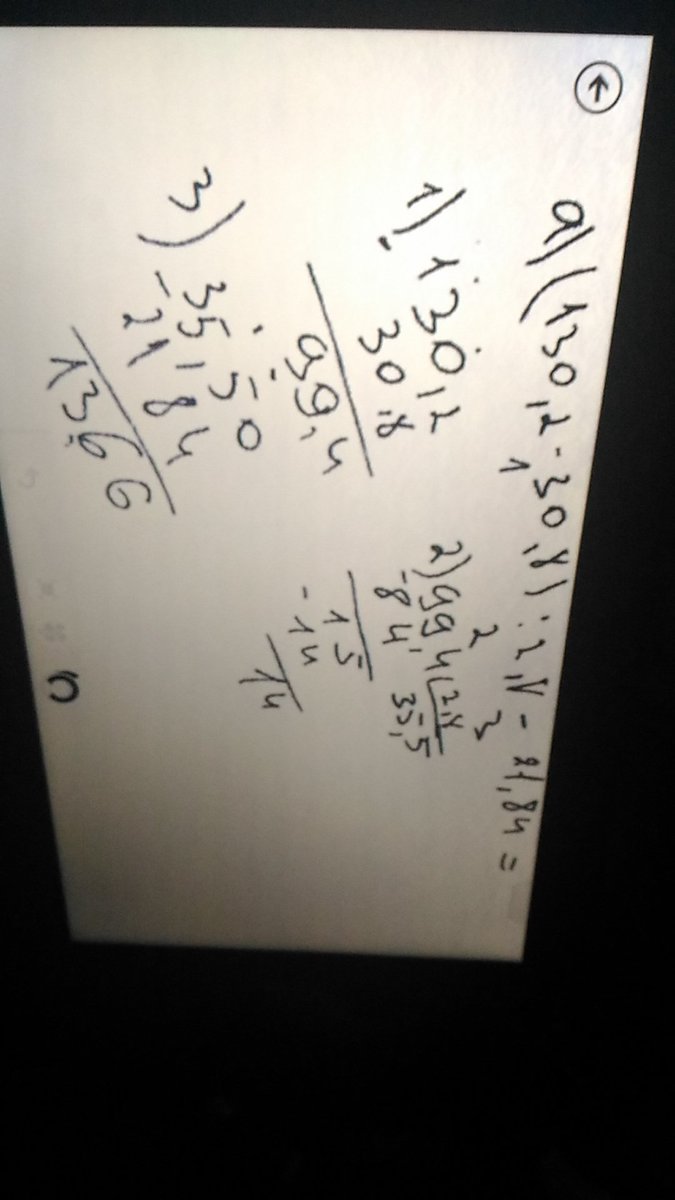 a) (130,2 - 30,8) : 2,8 - 21,84 =
1 2 3
1) 130,2
30,8
99,4
2) 994 | 2,8
-84 35,5
15
-14
14
3) 35,50
-21,84
13,66